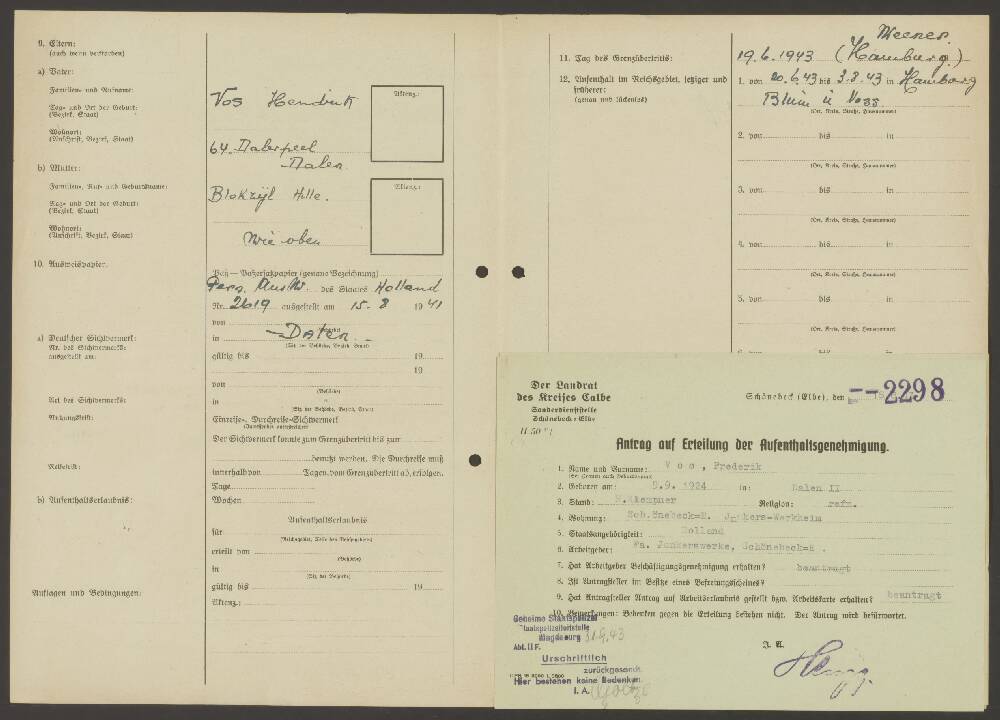 9. Eltern:
(auch wenn verstorben)
a) Vater:
Familien- und Rufname:
Vos Hendrik
Aktenz.:
Tag- und Ort der Geburt:
(Bezirk, Staat)
Wohnort:
(Anschrift, Bezirk, Staat)
64. Dalerpeel
Dalen
b) Mutter:
Familien-, Ruf- und Geburtsname:
Blokzijl Hille.
Aktenz.:
Tag- und Ort der Geburt:
(Bezirk, Staat)
Wohnort:
(Anschrift, Bezirk, Staat)
wie oben
10. Ausweispapier.
Paß — Paßersatzpapier (genaue Bezeichnung)
Pers. Ausw. des Staates Holland
Nr. 2619 ausgestellt am 15. 8 1941
von
in Dalen
(Sitz der Behörde, Bezirk, Staat)
a) Deutscher Sichtvermerk:
Nr. des Sichtvermerks:
ausgestellt am:
gültig bis 19
19
von
(Behörde)
Art des Sichtvermerks:
in
(Sitz der Behörde, Bezirk, Staat)
Nutzungsfrist:
Einreise-, Durchreise-Sichtvermerk
Der Sichtvermerk konnte zum Grenzübertritt bis zum
benutzt werden. Die Durchreise muß
Reisefrist:
innerhalb von Tagen, vom Grenzübertritt ab, erfolgen.
Tage
b) Aufenthaltserlaubnis:
Wochen
Aufenthaltserlaubnis
für
(Reichsgebiet, Teile des Reichsgebiets)
erteilt von
(Behörde)
in
(Sitz der Behörde)
gültig bis 19
Auflagen und Bedingungen:
Aktenz.:
Weener.
11. Tag des Grenzübertritts:
19.6.1943 (Hamburg.)
12. Aufenthalt im Reichsgebiet, jetziger und
früherer:
(genau und lückenlos)
1. von 20.6.43 bis 3.8.43 in Hamburg
Blum u Voss
(Ort, Kreis, Straße, Hausnummer)
2. von bis in
(Ort, Kreis, Straße, Hausnummer)
3. von bis in
(Ort, Kreis, Straße, Hausnummer)
4. von bis in
(Ort, Kreis, Straße, Hausnummer)
5. von bis in
(Ort, Kreis, Straße, Hausnummer)
Der Landrat
des Kreises Calbe
Sonderdienststelle
Schönebeck-Elbe
Schönebeck (Elbe), den
--2298
Antrag auf Erteilung der Aufenthaltsgenehmigung.
1. Name und Vorname: Vos, Frederik
(bei Frauen auch Geburtsname)
2. Geboren am: 5.9.1924 in: Dalen II
3. Stand: Klempner Religion: refm.
4. Wohnung: Schönebeck-E. Junkers-Werkheim
5. Staatsangehörigkeit: Holland
6. Arbeitgeber: Fa. Junkerswerke, Schönebeck-E.
7. Hat Arbeitgeber Beschäftigungsgenehmigung erhalten? beantragt
8. Ist Antragsteller im Besitze eines Befreiungsscheines?
9. Hat Antragsteller Antrag auf Arbeitserlaubnis gestellt bzw. Arbeitskarte erhalten? beantragt
10. Bemerkungen: Bedenken gegen die Erteilung bestehen nicht. Der Antrag wird befürwortet.
Geheime Staatspolizei
Staatspolizeileitstelle
Magdeburg
Abt. II F.
Urschriftlich
zurückgesandt.
Hier bestehen keine Bedenken.
I. A.
J. A.